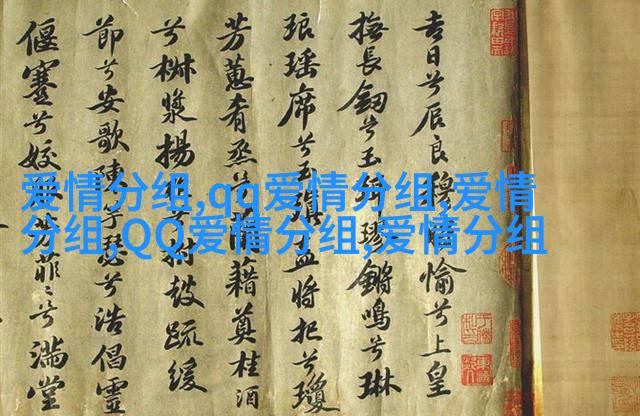 爱情分组,qq爱情分组,爱情
分组,QQ爱情分组,爱情分组
吉日兮辰良穆將愉兮上皇
撫長劒兮玉珥璆鏘鳴兮琳
琅瑤席兮玉瑱盍將把兮瓊
芳蕙肴烝兮蘭藉奠桂酒
兮椒漿揚枹兮拊鼓疏緩
節兮安歌陳竽瑟兮浩倡靈
偃蹇兮姣服菲〻兮滿堂